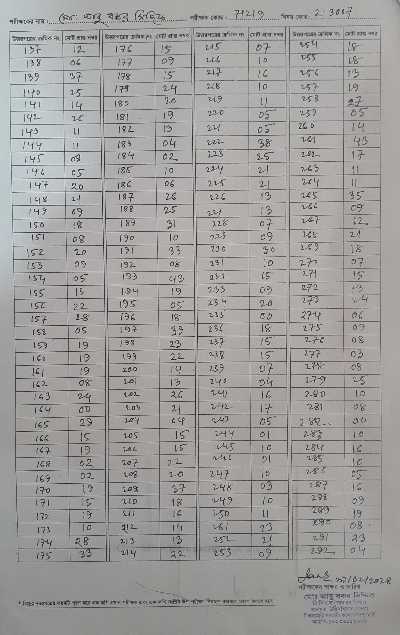 পরীক্ষকের নাম : মোঃ আবু বকর সিদ্দিক পরীক্ষক কোড : 71219 বিষয় কোড : 2 3017
উত্তরপত্রের ক্রমিক নং মোট প্রাপ্ত নম্বর উত্তরপত্রের ক্রমিক নং মোট প্রাপ্ত নম্বর উত্তরপত্রের ক্রমিক নং মোট প্রাপ্ত নম্বর উত্তরপত্রের ক্রমিক নং মোট প্রাপ্ত নম্বর
137 12 176 15 215 07 254 18
138 06 177 09 216 10 255 18
139 37 178 15 217 16 256 13
140 25 179 24 218 10 257 19
141 14 180 20 219 11 258 27
142 26 181 19 220 05 259 05
143 11 182 13 221 05 260 14
144 11 183 04 222 38 261 43
145 08 184 02 223 25 262 17
146 05 185 10 224 21 263 11
147 20 186 06 225 21 264 11
148 21 187 26 226 13 265 35
149 09 188 25 227 13 266 09
150 18 189 31 228 07 267 12
151 08 190 10 229 09 268 21
152 20 191 33 230 30 269 18
153 09 192 08 231 10 270 07
154 05 193 43 232 15 271 15
155 13 194 19 233 09 272 13
156 22 195 05 234 20 273 24
157 28 196 18 235 00 274 06
158 05 197 33 236 18 275 09
159 19 198 23 237 15 276 08
160 19 199 22 238 15 277 03
161 19 200 14 239 07 278 08
162 08 201 13 240 04 279 25
163 24 202 26 241 16 280 10
164 00 203 21 242 17 281 08
165 29 204 04 243 05 282 00
166 15 205 15 244 01 283 10
167 19 206 15 245 10 284 16
168 02 207 22 246 21 285 10
169 02 208 20 247 10 286 05
170 19 209 37 248 03 287 16
171 15 210 18 249 10 288 09
172 19 211 16 250 11 289 19
173 10 212 14 251 23 290 08
174 28 213 13 252 21 291 23
175 33 214 22 253 09 292 04
27/02/2024
মোঃ আবু বকর সিদ্দিক